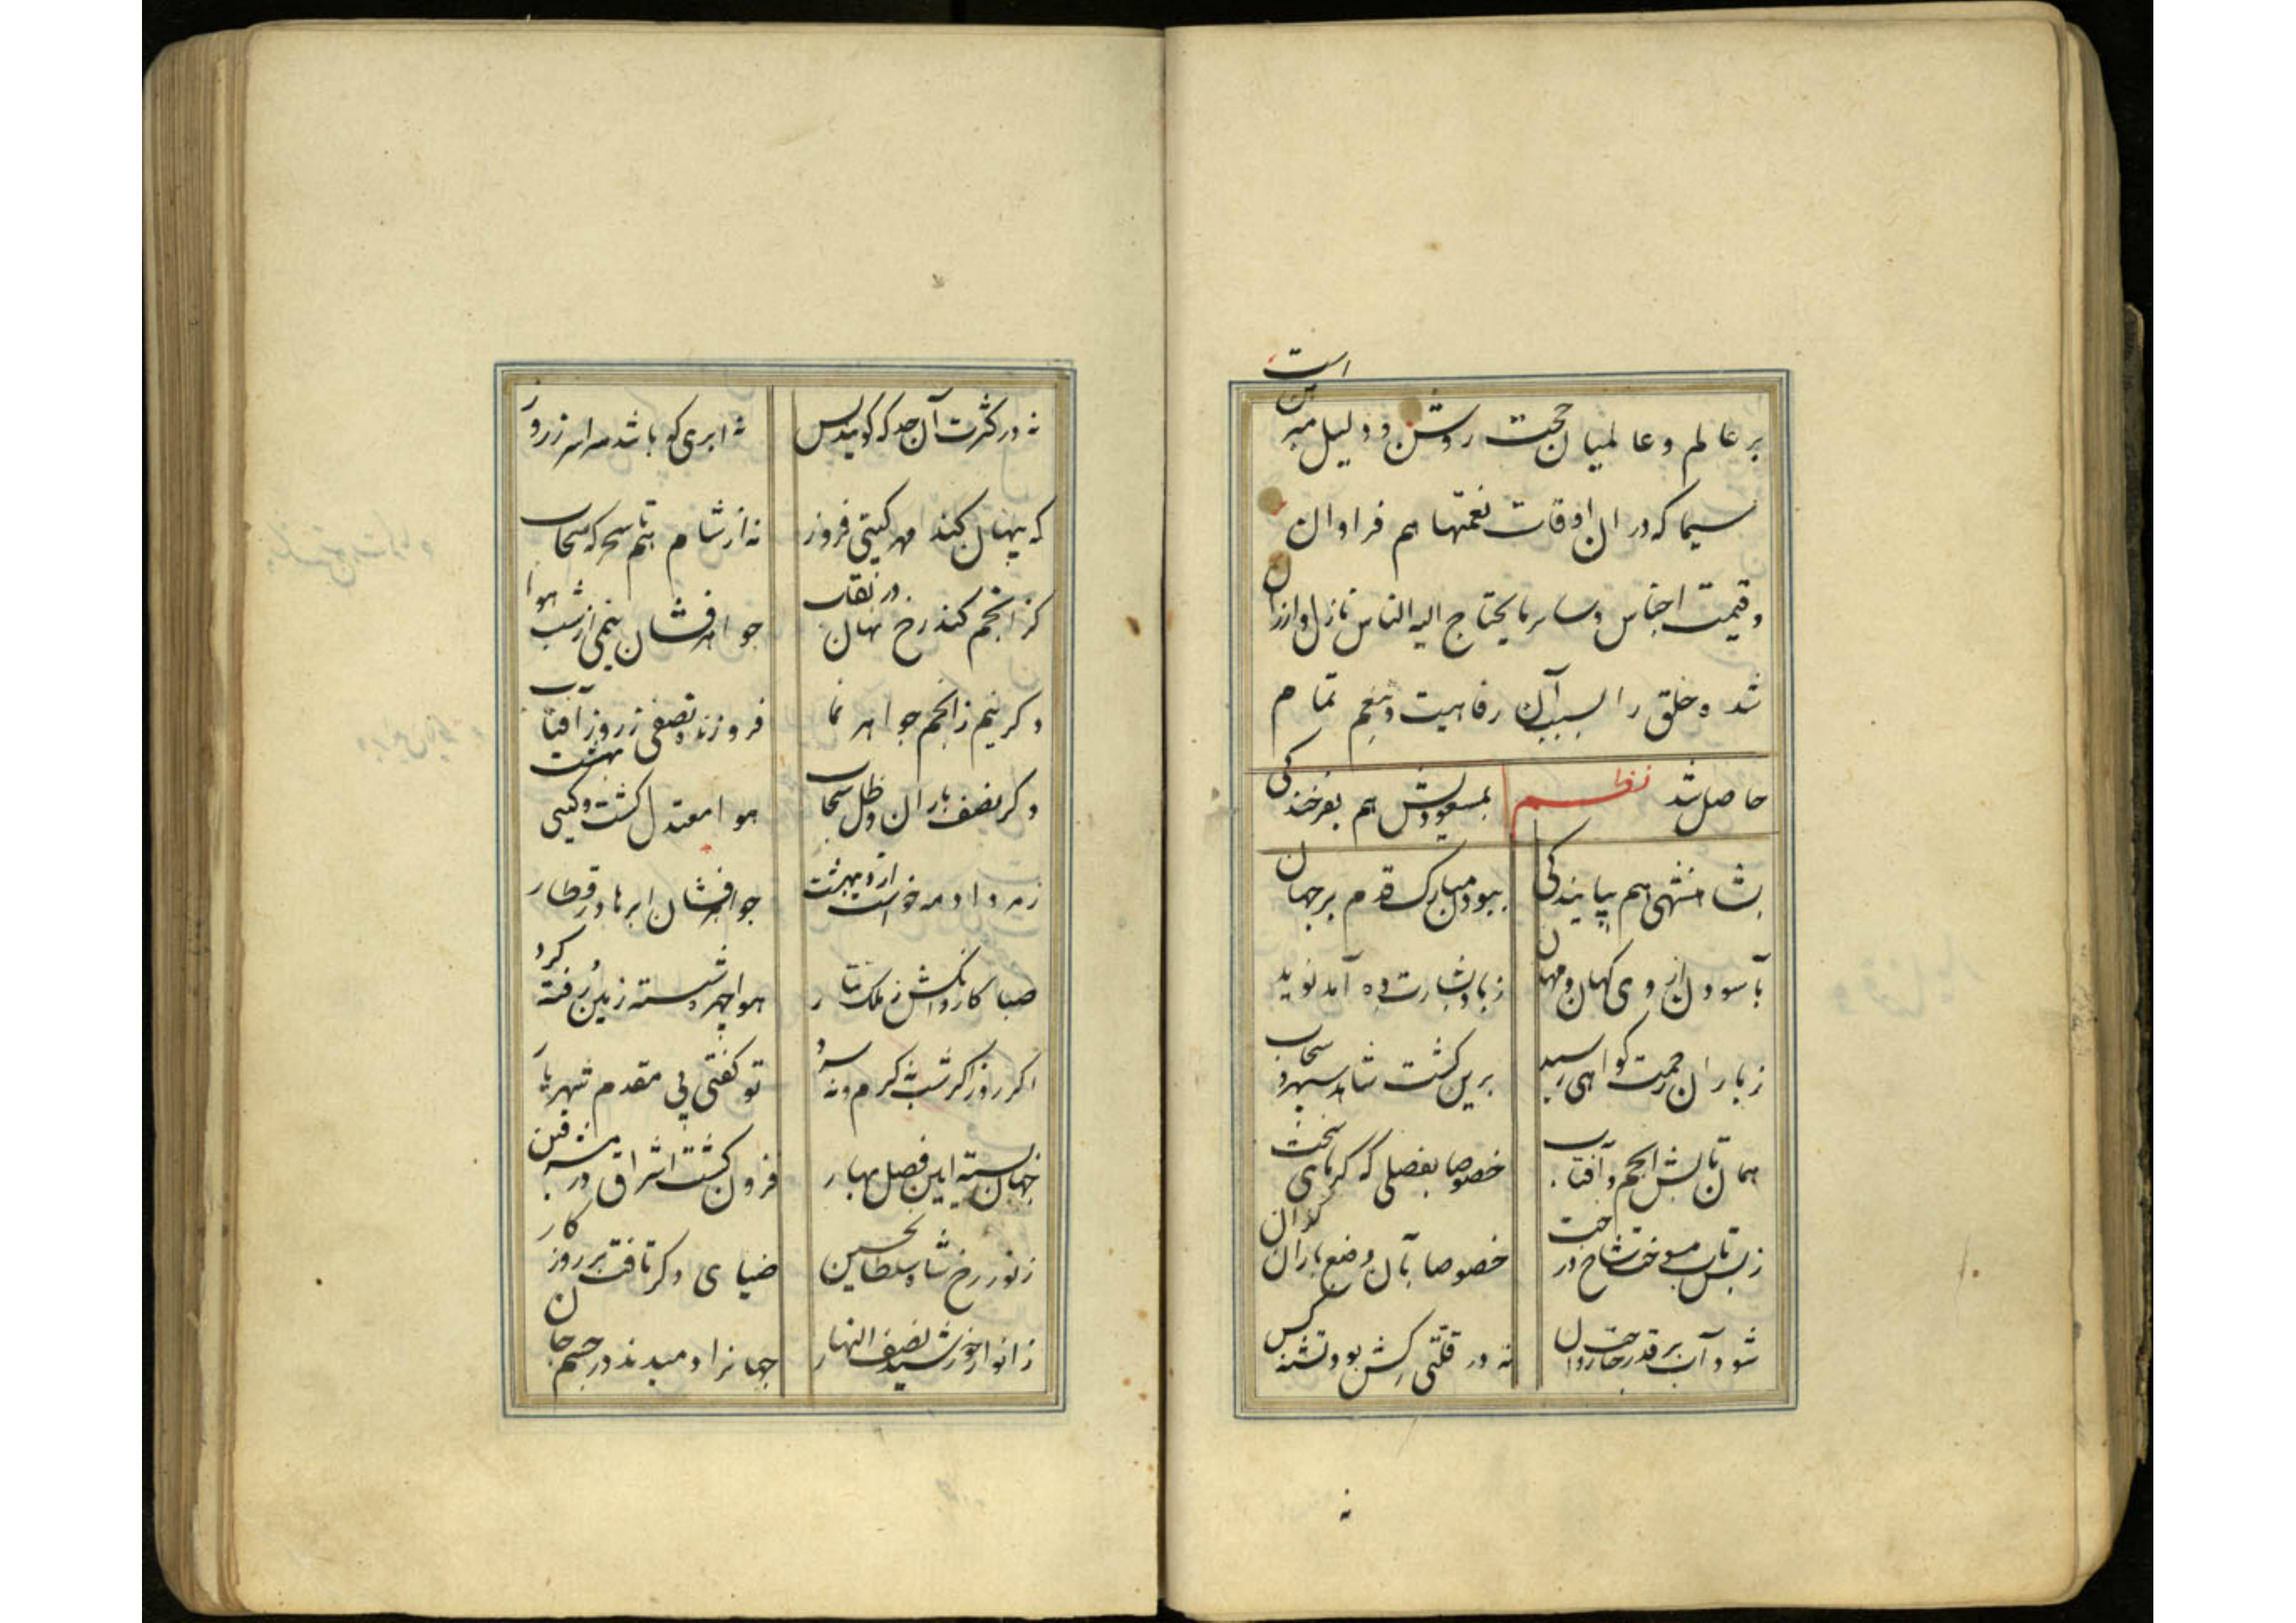 است
بر عالم و عالمیان حجت روشن و دلیل مبین
سیما که در ان اوقات نعمتها هم فراوان
و قیمت اجناس و سایر مایحتاج الیه الناس نازل و ارزان
شد و خلق را بسبب آن رفاهیت و تنعم تمام
حاصل شد نظم بمسعودیش هم بفرخندکی
بشاهنشهی هم بپایندکی ببود مبارک قدم بر جهان
بآسودن از وی کهان و مهان ز باد بشارت ده آمد نوید
ز باران رحمت کواهی رسید برین کشت شاهد سپهر و سحاب
همان تابش انجم و آفتاب خصوصا بفصلی که کرمای سخت
ز بس تاب میسوخت شاخ درخت خصوصا بآن وضع باران کران
شود آب بر قدر حاجت روان نه در قلتی کش بود تشنه کس
نه در کثرت آن حد که کویند بس نه ابری که باشد سراسر ز روز
که پنهان کند مهر کیتی فروز نه از شام هم تا سحر که سحاب
کز انجم کند رخ نهان در نقاب جواهر فشان نیمی از شب هوا
و کر نیم ز انجم جواهر نما فروزنده نصفی ز روز آفتاب
و کر نصف باران و ظل سحاب هوا معتدل کشت و کیتی بهشت
ز مرداد مه خواست اردیبهشت جواهر فشان ابرها در قطار
صبا کاروانکش ز ملک تتار هوا چهره شسته زمین رفته کرد
اکر روز اکر شب نه کرم و نه سرد تو کفتی پی مقدم شهریار
جهان بسته آیین فصل بهار فزون کشت اشراق در مشرقین
ز نور رخ شاه سلطان حسین ضیای دکر تافت بر روز کار
ز انوار خورشید نصف النهار جهانرا دمیدند در جسم جان
نه